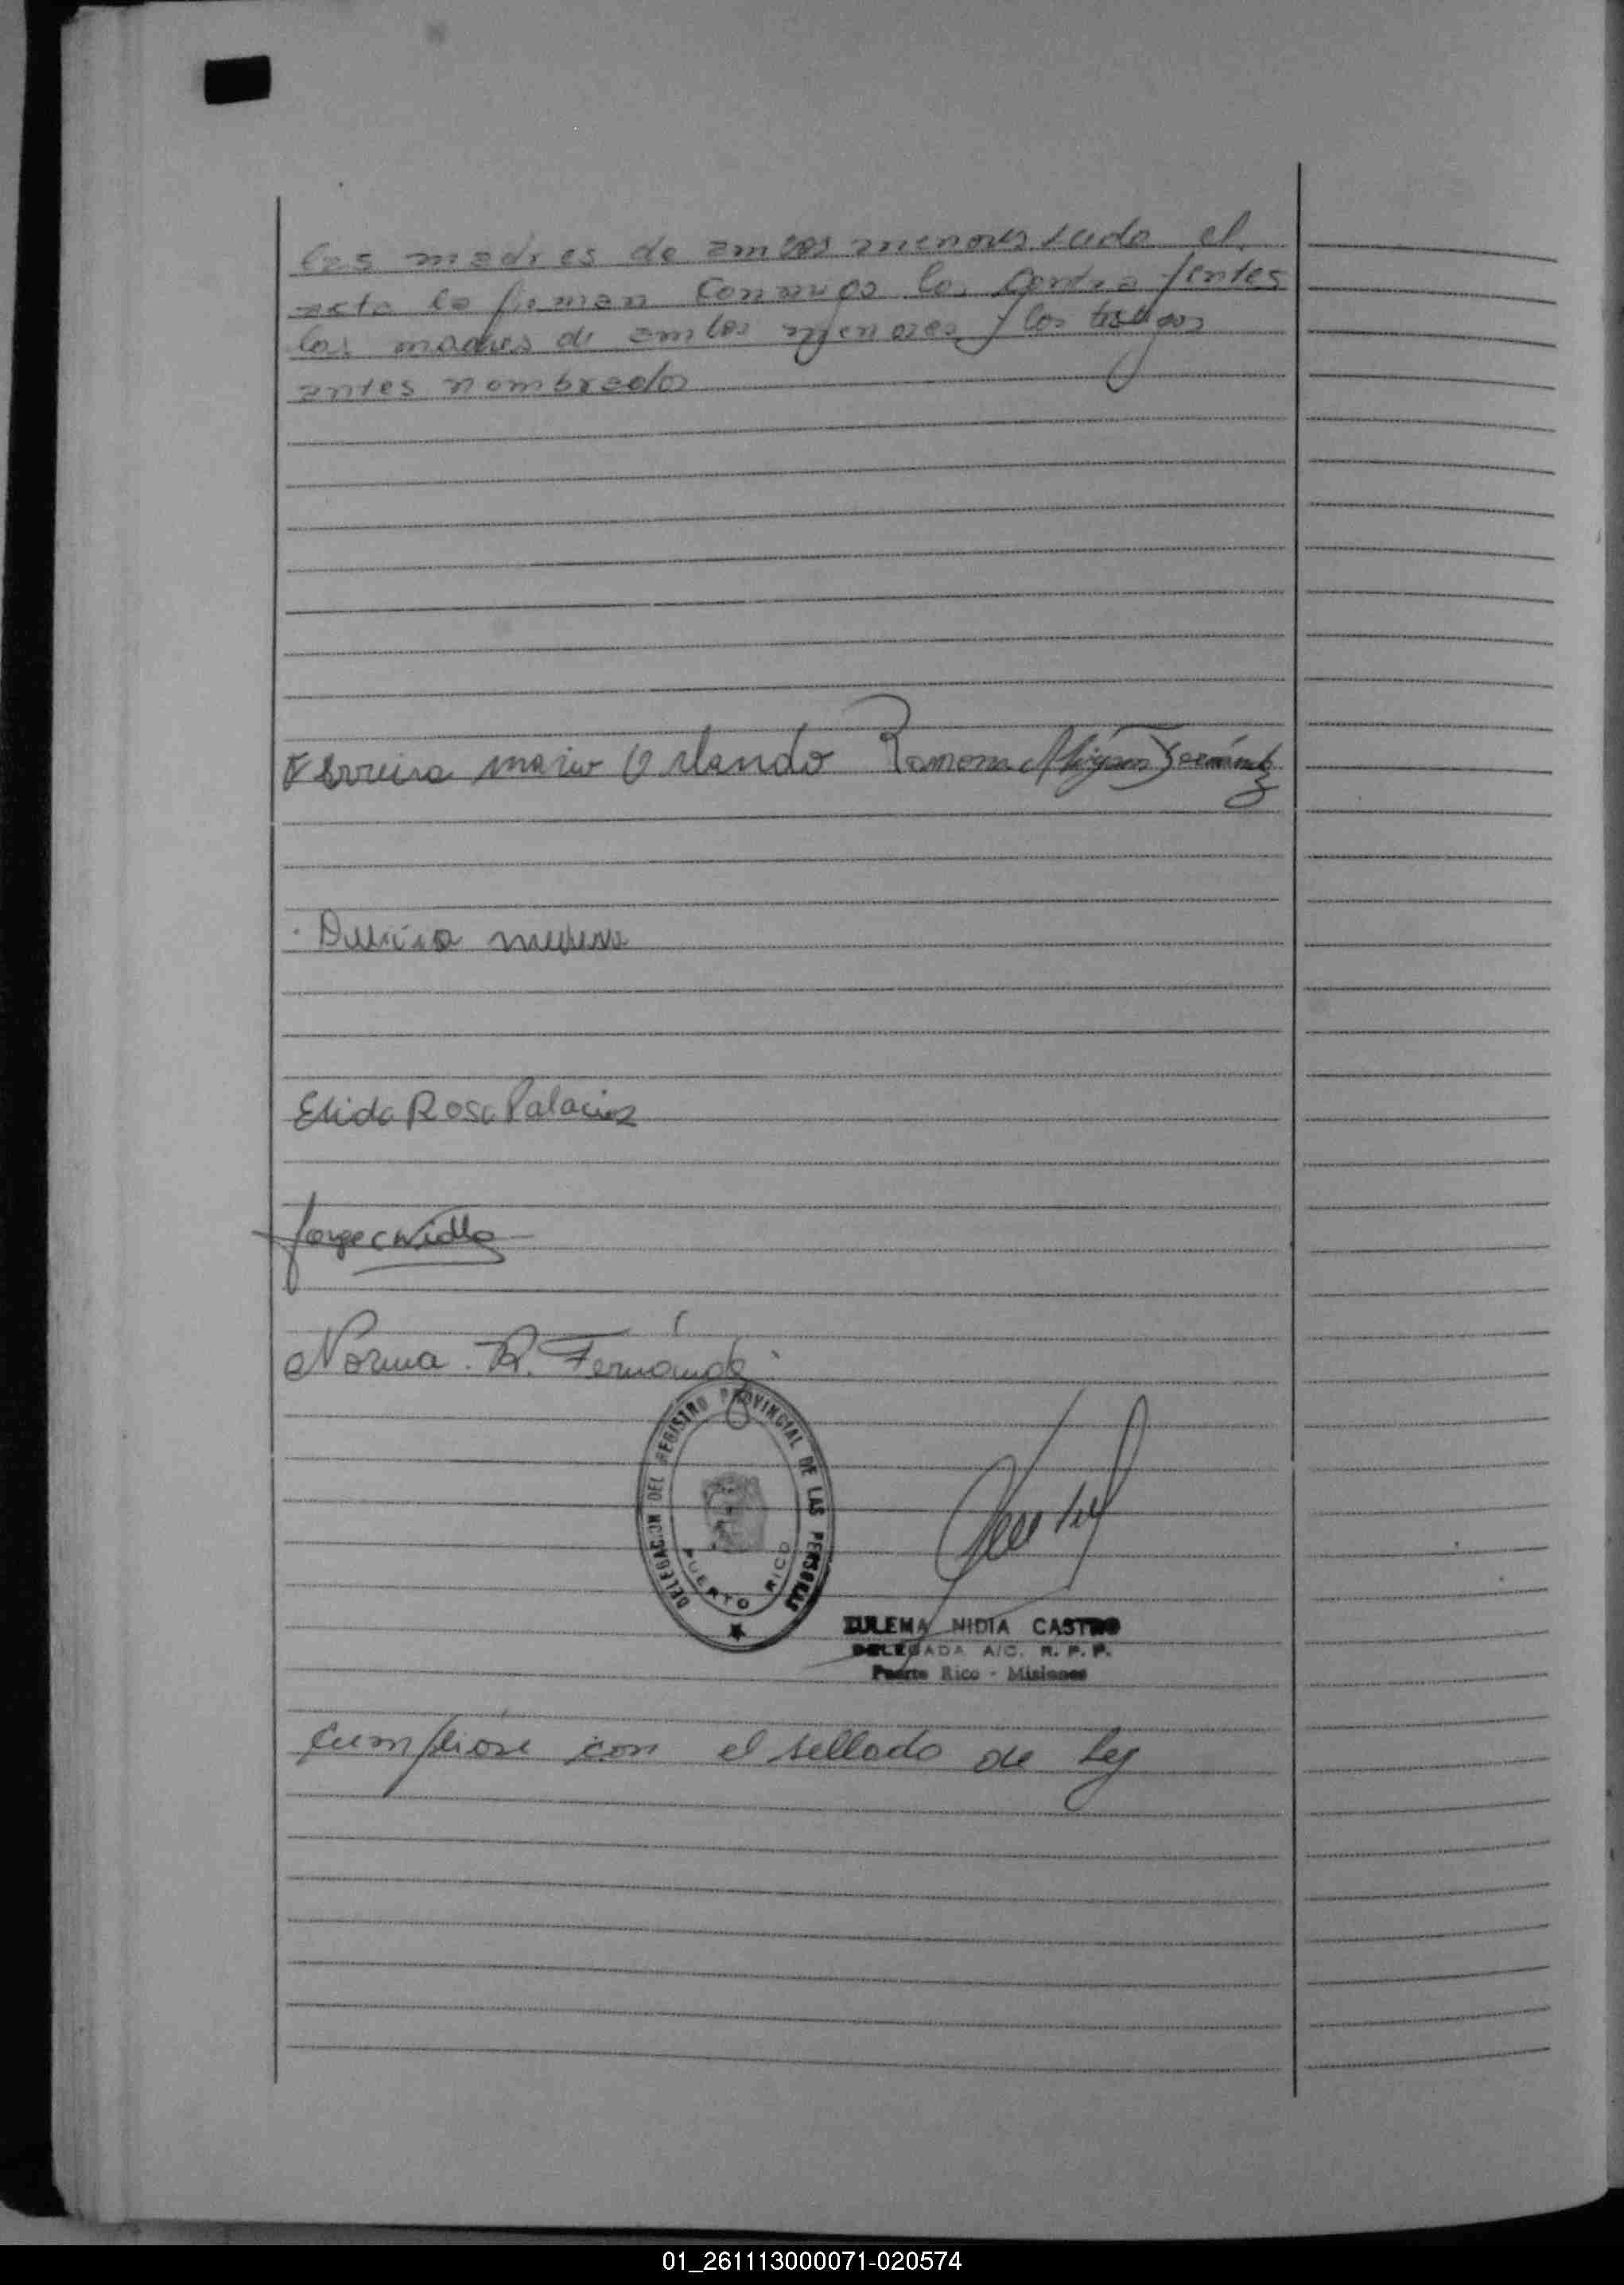 las madres de ambos menores Leido el
acta la firman conmigo los contrayentes
las madres de ambos menores y los testigos
antes nombrados
Ferreira mario Orlando Ramona Miryam Fernández
Elida Rosa Palacios
Jorge
Norma. R. Fernández
DELEGACION DEL REGISTRO PROVINCIAL DE LAS PERSONAS
PUERTO RICO
ZULEMA NIDIA CASTRO
DELEGADA A/C. R. P. P.
Puerto Rico - Misiones
Cumplióse con el sellado de Ley
01_261113000071-020574